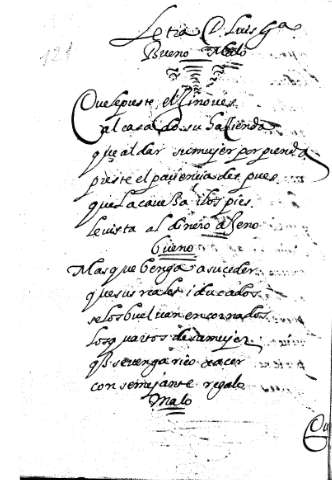 121
Letra D. Luis Ga
Bueno Malo
Que se preste el Ginoves
al casado su haçienda
que al dar su mujer por prenda
preste el paçiencia despues
que la caveza i los pies
le vista el dinero ageno
bueno
Mas que benga a suceder
que sus reales i ducados
se los buelvan en cornados
los quartos de su mujer
q se venga rico a
con semejante regalo
malo